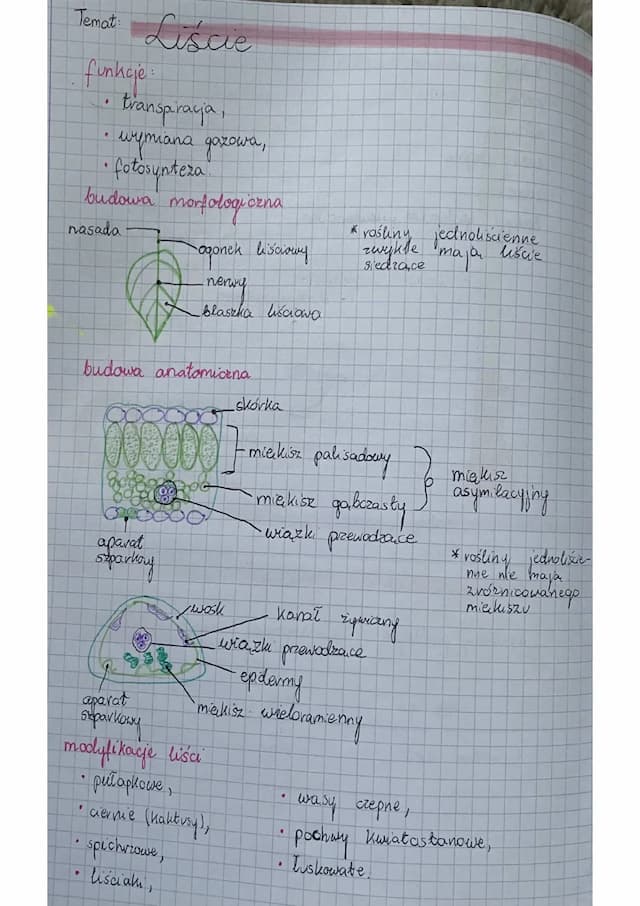 Temat: Liście
funkcje:
• transpiracja,
• wymiana gazowa,
• fotosynteza.
budowa morfologiczna
nasada
ogonek liściowy
nerwy
blaszka liściowa
* rośliny jednoliścienne
zwykle mają liście
siedzące
budowa anatomiczna
skórka
miękisz palisadowy
miękisz gąbczasty
wiązki przewodzące
miękisz
asymilacyjny
aparat
szparkowy
* rośliny jednoliście-
nne nie mają
zróżnicowanego
miękiszu
wosk
kanał żywiczny
wiązki przewodzące
epidermy
miękisz wieloramienny
aparat
szparkowy
modyfikacje liści
• pułapkowe,
• ciernie (kaktusy),
• spichrzowe,
• liściaki,
• wąsy czepne,
• pochwy kwiatostanowe,
• łuskowate.